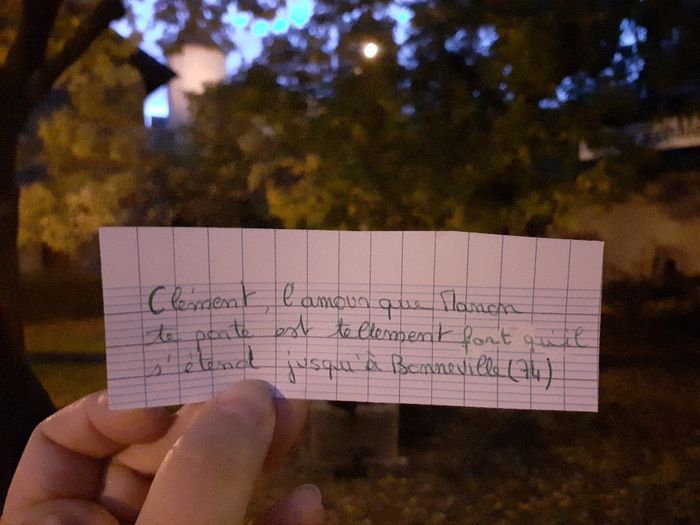 Clément, l'amour que Manon
te porte est tellement fort qu'il
s'étend jusqu'à Bonneville (74)